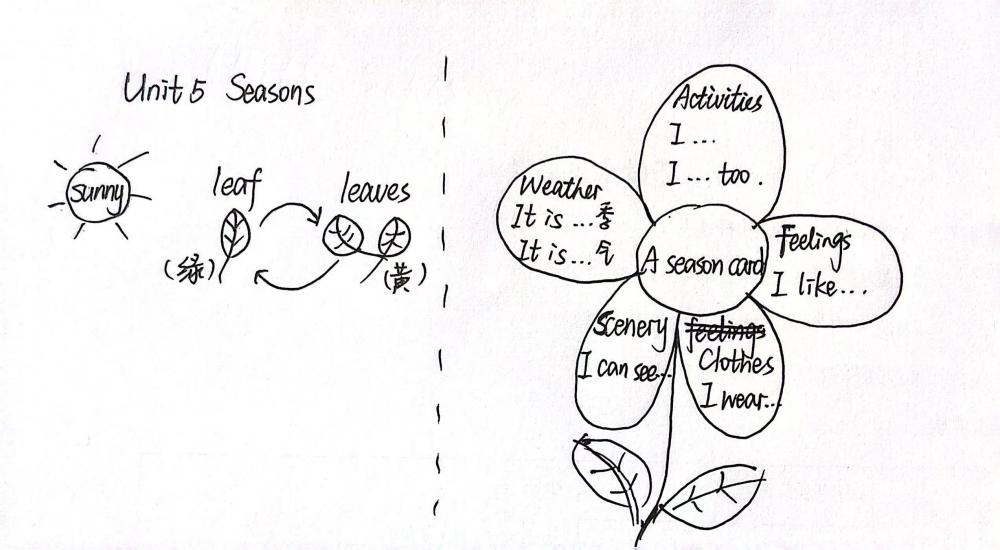 Unit 5 Seasons
sunny
leaf
leaves
(绿)
(黄)
Activities
I ...
I ... too.
Weather
It is ...季
It is ...气
A season card
Feelings
I like...
Scenery
I can see...
feelings
Clothes
I wear...